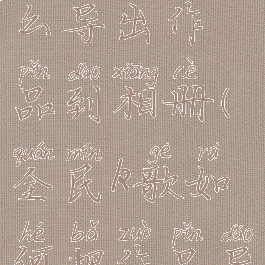 么导出作
pǐn dào xiāng cè
品到相册(
quán mín gē rú
全民K歌如
hé bǎ zuò pǐn dǎo
何把作品导